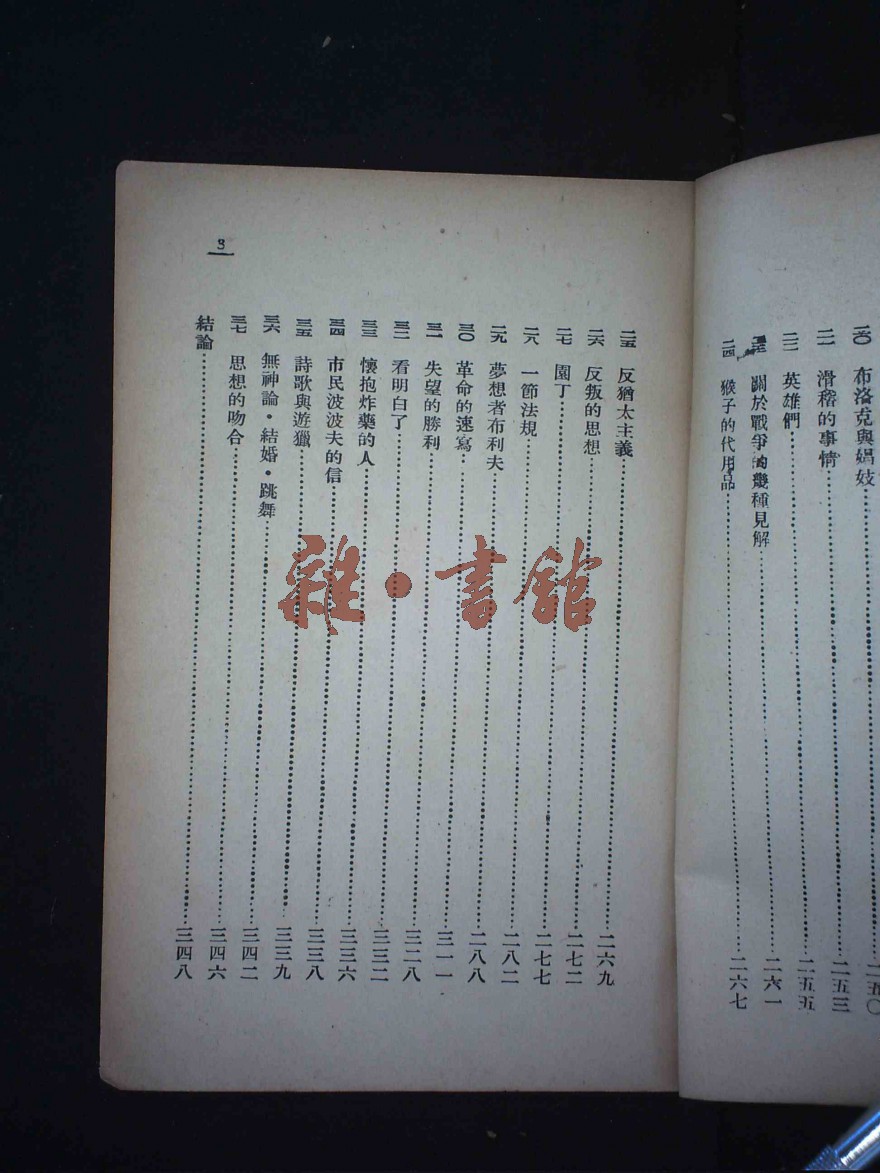 二〇 布洛克與娼妓……二五〇
二一 滑稽的事情……二五三
二二 英雄們……二五五
二三 關於戰爭的幾種見解……二六一
二四 猴子的代用品……二六七
二五 反猶太主義……二六九
二六 反叛的思想……二七二
二七 園丁……二七七
二八 一節法規……二八二
二九 夢想者布利夫……二八八
三〇 革命的速寫……三一一
三一 失望的勝利……三二八
三二 看明白了……三三二
三三 懷抱炸藥的人……三三六
三四 市民波波夫的信……三三八
三五 詩歌與遊獵……三三九
三六 無神論・結婚・跳舞……三四二
三七 思想的吻合……三四六
結論……三四八
3
雜・書館